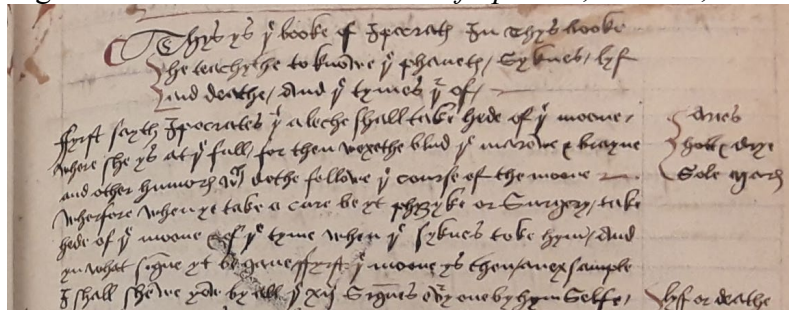 Thys ys yͤ booke of Ipocrath In thys booke
he teachythe to knowe yͤ phanets, Syknes, lyf
and deathe, And yͤ tymes yͬ of,
ffyrst sayth Ipocrates yͭ a leche shall take hede of yͤ moone,
where she ys at yͤ full, for then wexethe blud yͤ marowe & brayne
and other humors wͨͪ dothe followe yͤ course of the moone
wherfore when ye take a care be yt phisyke or Surgery, take
hede of yͤ moone & of yͤ tyme when yͤ syknes toke hym, And
yn what signe yt began ffyrst yͤ moone ys then, an exsample
I shall shewe yow by all yͤ xij Signes euy one by hym Selfe,
aries
hott & drye
Sole marc
lyf or deathe